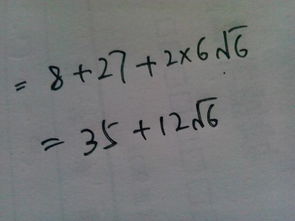 = 8+27+2×6√6
= 35+12√6